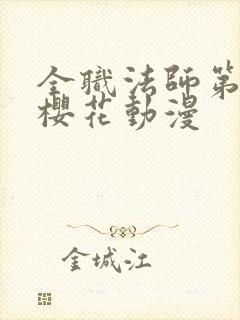 全職法師第
櫻花動漫
金城江